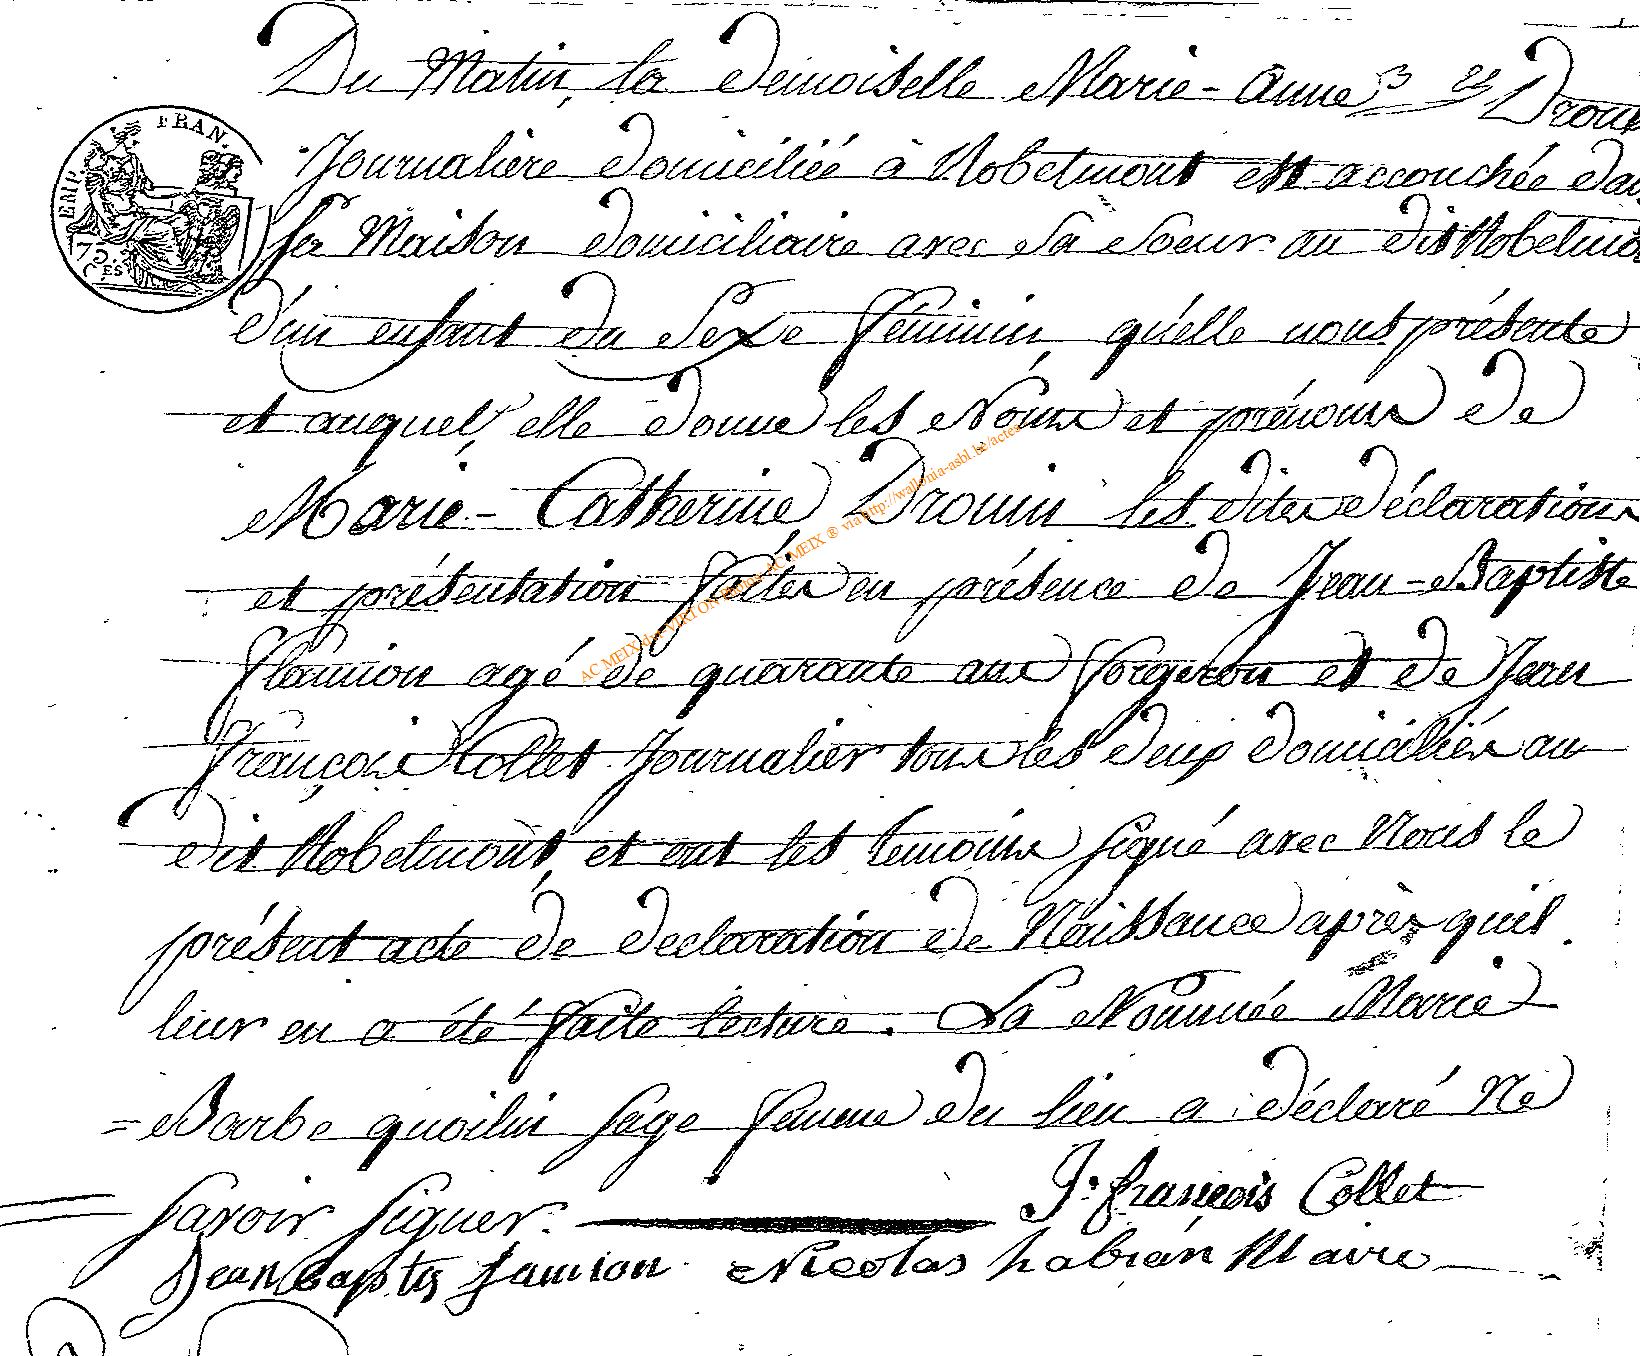 Du Matin, la demoiselle Marie-Anne Drou
EMP. FRAN.
75.
CES
Journalière domiciliéé à Robelmont est accouchée da
sa Maison domiciliaire avec sa soeur au dit Robelmo
d'un enfant du sexe féminin, qu'elle nous présente
et auquel, elle donne les Noms et prénoms de
Marie-Catherine Drouin les dites déclaration
et présentation faites en présence de Jean-Baptiste
flamion agé de quarante ans forgeron et de Jean
françois Collet Journalier tous les deux domiciliés au
dit Robelmont, et ont les temoins signé avec Nous le
présent acte de declaration de Naissance après quil
leur en a été faite lecture. La Nommée Marie
=Barbe quoilin sage femme du lieu a déclaré Ne
savoir signer.
J. françois Collet
Jean baptis flamion Nicolas habran Maire
AC MEIX-dvt-VIRTON AC MEIX ® via http://wallonia-asbl.be/actes